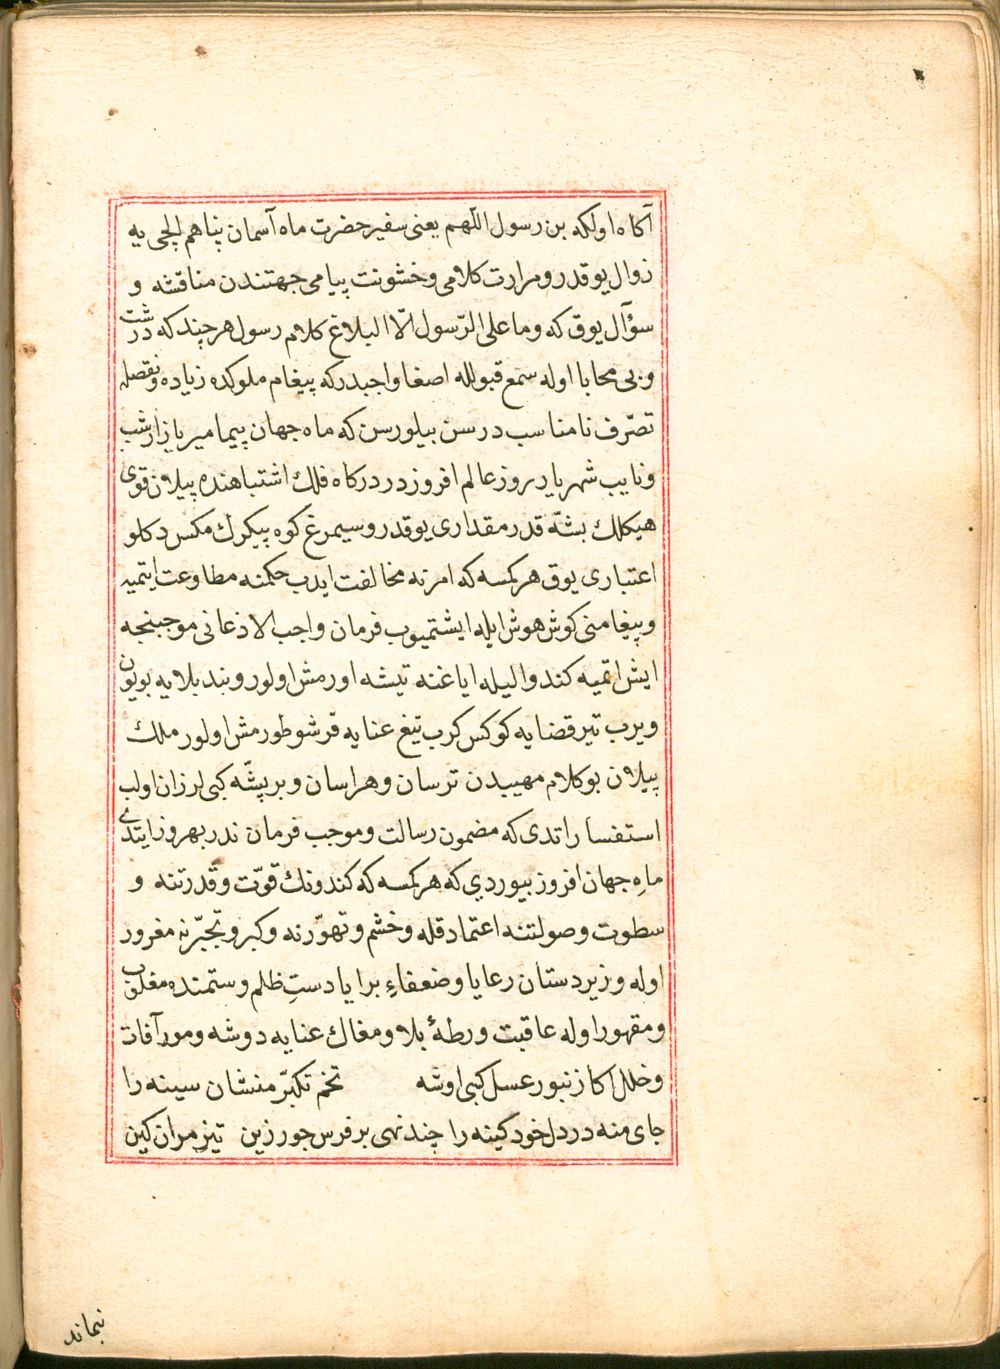 آكاه اولكه بن رسول اللّهم يعنى سفير حضرت ماه آسمان پناهم ايلچى يه
زوال يوقدر ومرارت كلامى وخشونت پيامى جهتندن مناقشه و
سؤال يوق كه وما على الرّسول الّا البلاغ كلام رسول هر چند كه درشت
و بى محابا اوله سمع قبولله اصغا واجبدر كه پيغام ملوكده زياده ونقصله
تصرّف نامناسب در سن بيلورسن كه ماه جهان پيما مير بازار شب
ونايب شهريار روز عالم افروزدر دركاه فلك اشتباهنده پيلان قوى
هيكلك بشّه قدر مقدارى يوقدر وسيمرغ كوه پيكرك مكس دكلو
اعتبارى يوق هر كمسه كه امرنه مخالفت ايدب حكمنه مطاوعت ايتميه
وپيغامنى كوش هوش ايله ايشتميوب فرمان واجب الاذعانى موجبنجه
ايش اتميه كندو اليله اياغنه تيشه اورمش اولور وبند بلايه بويون
ويرب تير قضايه كوكس كرب تيغ عنايه قرشو طورمش اولور ملك
پيلان بو كلام مهيبدن ترسان وهراسان وبر پشّه كبى لرزان اولب
استفسار اتدى كه مضمون رسالت وموجب فرمان ندر بهروز ايتدى
ماه جهان افروز بيوردي كه هر كمسه كه كندونك قوّت وقدرتنه و
سطوت وصولتنه اعتماد قله وخشم وتهوّرنه وكبر وتجبّرنه مغرور
اوله وزيردستان رعايا وضعفاء برايا دست ظلم وستمنده مغلوب
ومقهور اوله عاقبت ورطۀ بلا ومغاك عنايه دوشه ومور آفات
وخلل اكا زنبور عسل كبى اوشه تخم تكبّر منشان سينه را
جاى منه در دل خود كينه را چند نهى بر فرس جور زين تيز مران كين
نماند